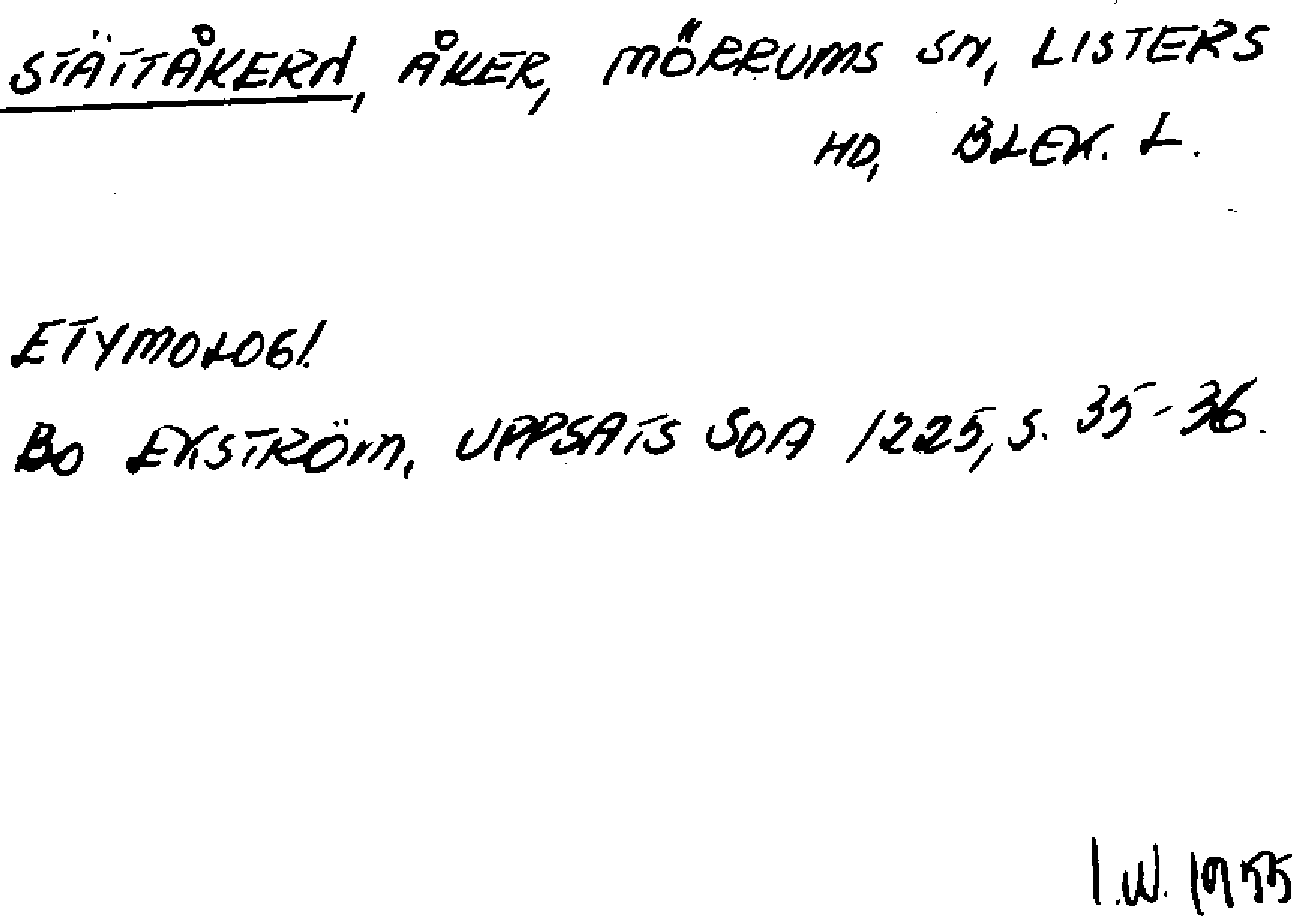 STÄTTÅKERN, ÅKER, MÖRRUMS SN, LISTERS
HD, BLEK. L.
ETYMOLOGI.
BO EKSTRÖM, UPPSATS SOA 1225, S. 35-36.
I.W. 1955